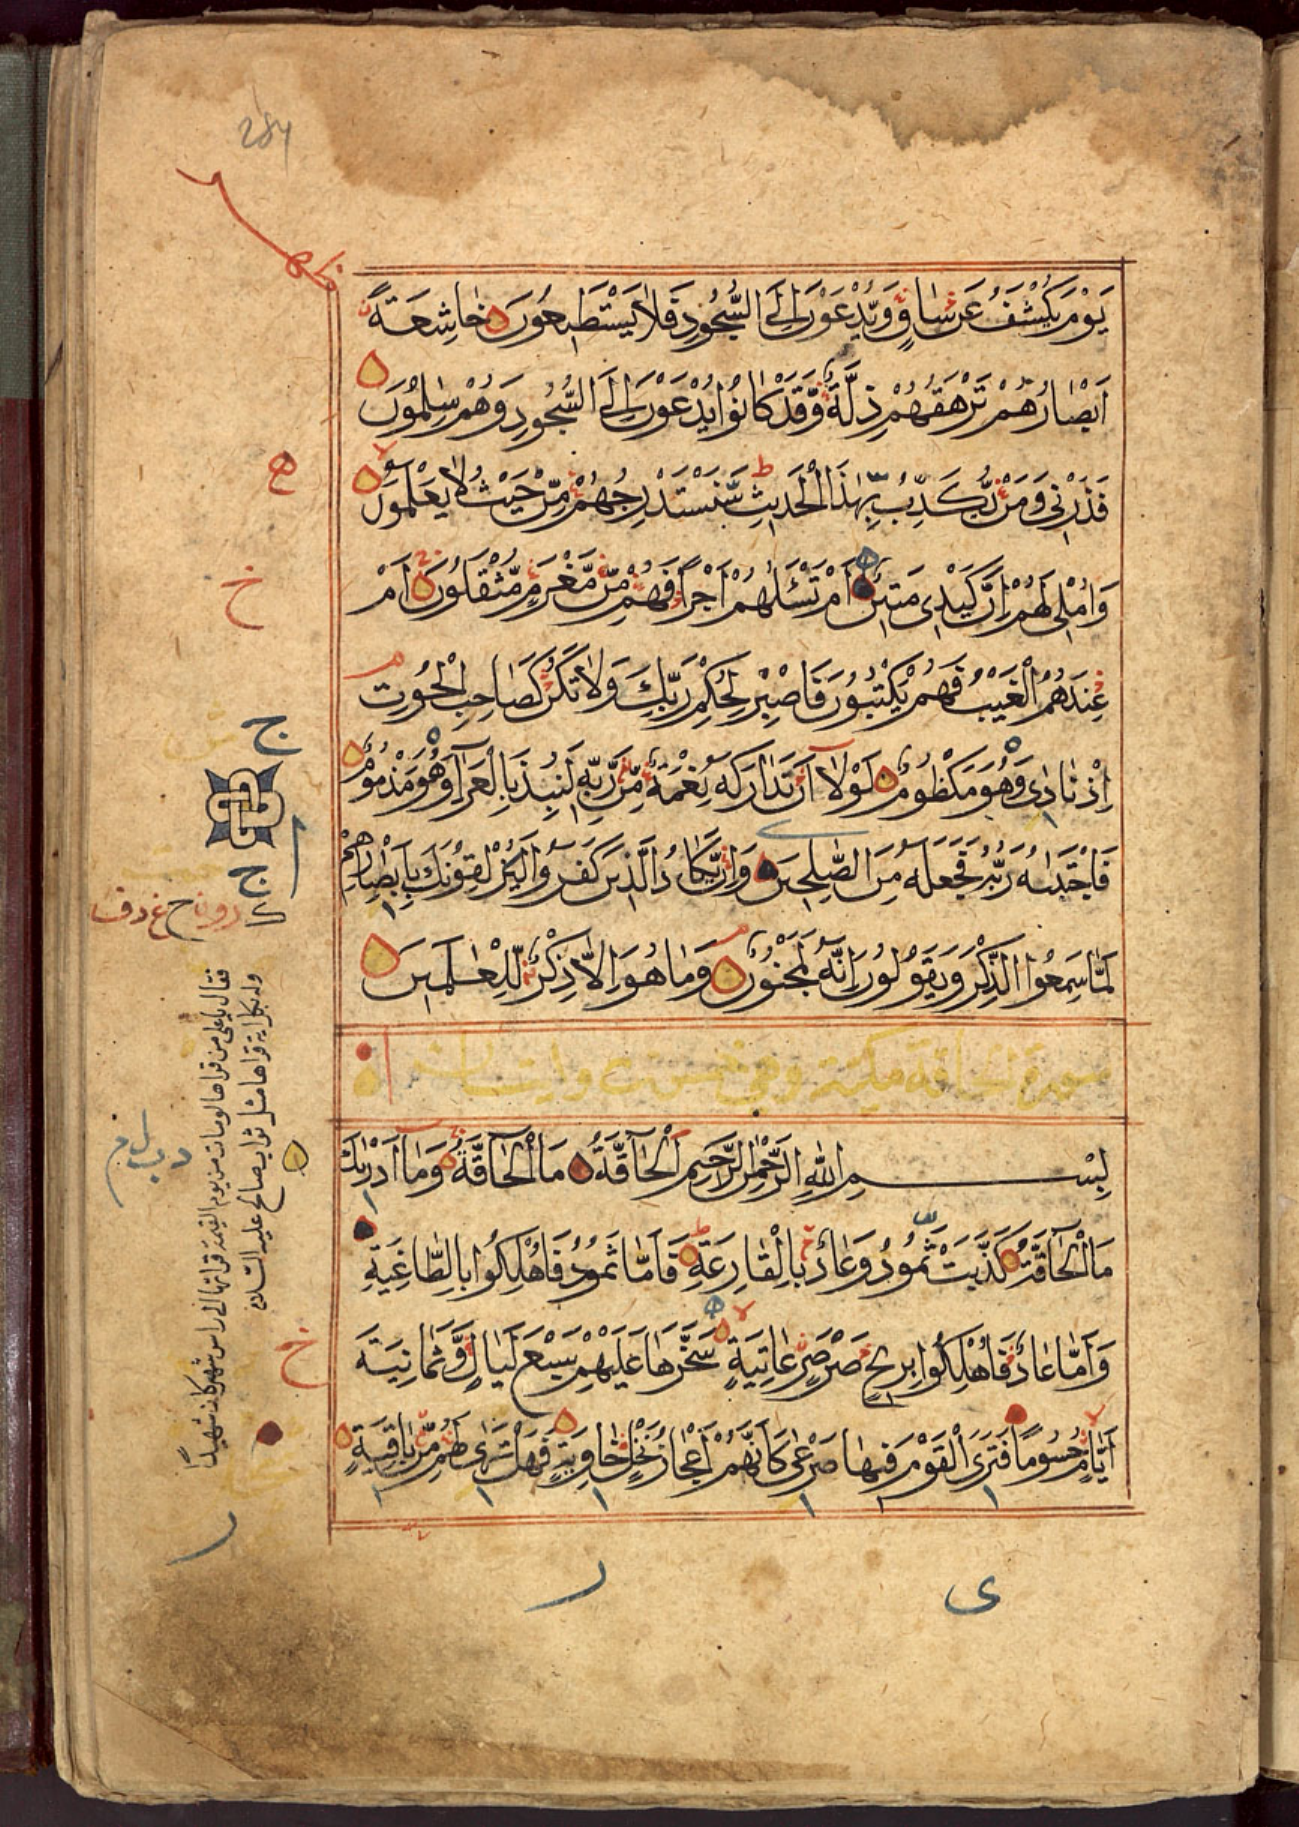 284
يَوْمَ يُكْشَفُ عَنْ سَاقٍ وَيُدْعَوْنَ اِلَى السُّجُودِ فَلَا يَسْتَطِيعُونَ خَاشِعَةً
اَبْصَارُهُمْ تَرْهَقُهُمْ ذِلَّةٌ وَّقَدْ كَانُوْا يُدْعَوْنَ اِلَى السُّجُودِ وَهُمْ سٰلِمُوْنَ
فَذَرْنِي وَمَنْ يُّكَذِّبُ بِهٰذَا الْحَدِيثِ سَنَسْتَدْرِجُهُمْ مِّنْ حَيْثُ لَا يَعْلَمُوْنَ
وَاُمْلِي لَهُمْ اِنَّ كَيْدِي مَتِيْنٌ اَمْ تَسْئَلُهُمْ اَجْرًا فَهُمْ مِّنْ مَّغْرَمٍ مُّثْقَلُوْنَ اَمْ
عِنْدَهُمُ الْغَيْبُ فَهُمْ يَكْتُبُوْنَ فَاصْبِرْ لِحُكْمِ رَبِّكَ وَلَا تَكُنْ كَصَاحِبِ الْحُوْتِ
اِذْ نَادٰى وَهُوَ مَكْظُومٌ لَوْلَا اَنْ تَدَارَكَهُ نِعْمَةٌ مِّنْ رَّبِّهِ لَنُبِذَ بِالْعَرَاءِ وَهُوَ مَذْمُومٌ
فَاجْتَبٰىهُ رَبُّهُ فَجَعَلَهُ مِنَ الصّٰلِحِيْنَ وَاِنْ يَّكَادُ الَّذِيْنَ كَفَرُوا لَيُزْلِقُوْنَكَ بِاَبْصَارِهِمْ
لَمَّا سَمِعُوا الذِّكْرَ وَيَقُوْلُوْنَ اِنَّهُ لَمَجْنُوْنٌ وَمَا هُوَ اِلَّا ذِكْرٌ لِّلْعٰلَمِيْنَ
سورة الحاقة مكية وهي خمسون وايتان
بِسْمِ اللهِ الرَّحْمٰنِ الرَّحِيمِ اَلْحَاقَّةُ مَا الْحَاقَّةُ وَمَا اَدْرٰىكَ
مَا الْحَاقَّةُ كَذَّبَتْ ثَمُوْدُ وَعَادٌ بِالْقَارِعَةِ فَاَمَّا ثَمُوْدُ فَاُهْلِكُوا بِالطَّاغِيَةِ
وَاَمَّا عَادٌ فَاُهْلِكُوا بِرِيْحٍ صَرْصَرٍ عَاتِيَةٍ سَخَّرَهَا عَلَيْهِمْ سَبْعَ لَيَالٍ وَّثَمَانِيَةَ
اَيَّامٍ حُسُومًا فَتَرَى الْقَوْمَ فِيهَا صَرْعٰى كَاَنَّهُمْ اَعْجَازُ نَخْلٍ خَاوِيَةٍ فَهَلْ تَرٰى لَهُمْ مِّنْ بَاقِيَةٍ
ه
خ
ج
ج
وله بكل اية قراها مثل ثواب صالح عليه السلام
فقال يا علي من قراها لو مات من يوم القيمة قراتها الى راس شهر كان شهيدا
خ
ر
ر
ى